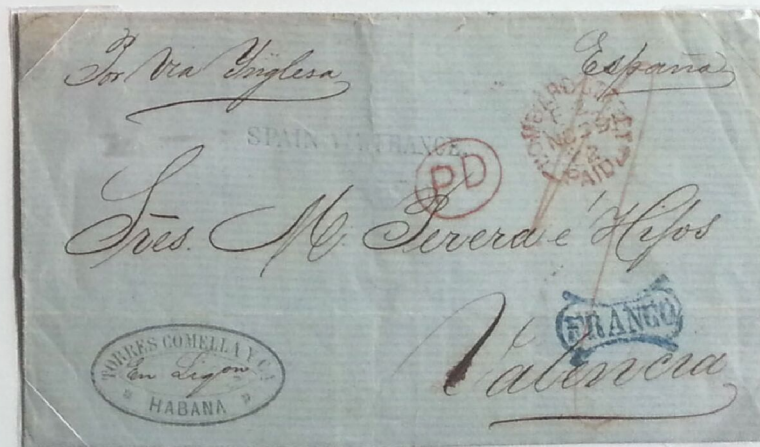 Por Via Ynglesa
España
SPAIN VIA FRANCE
LOMBARD STREET
PAID
PD
Sres. M. Perera é Hijos
FRANCO
Valencia
TORRES COMELLA Y Cª
HABANA